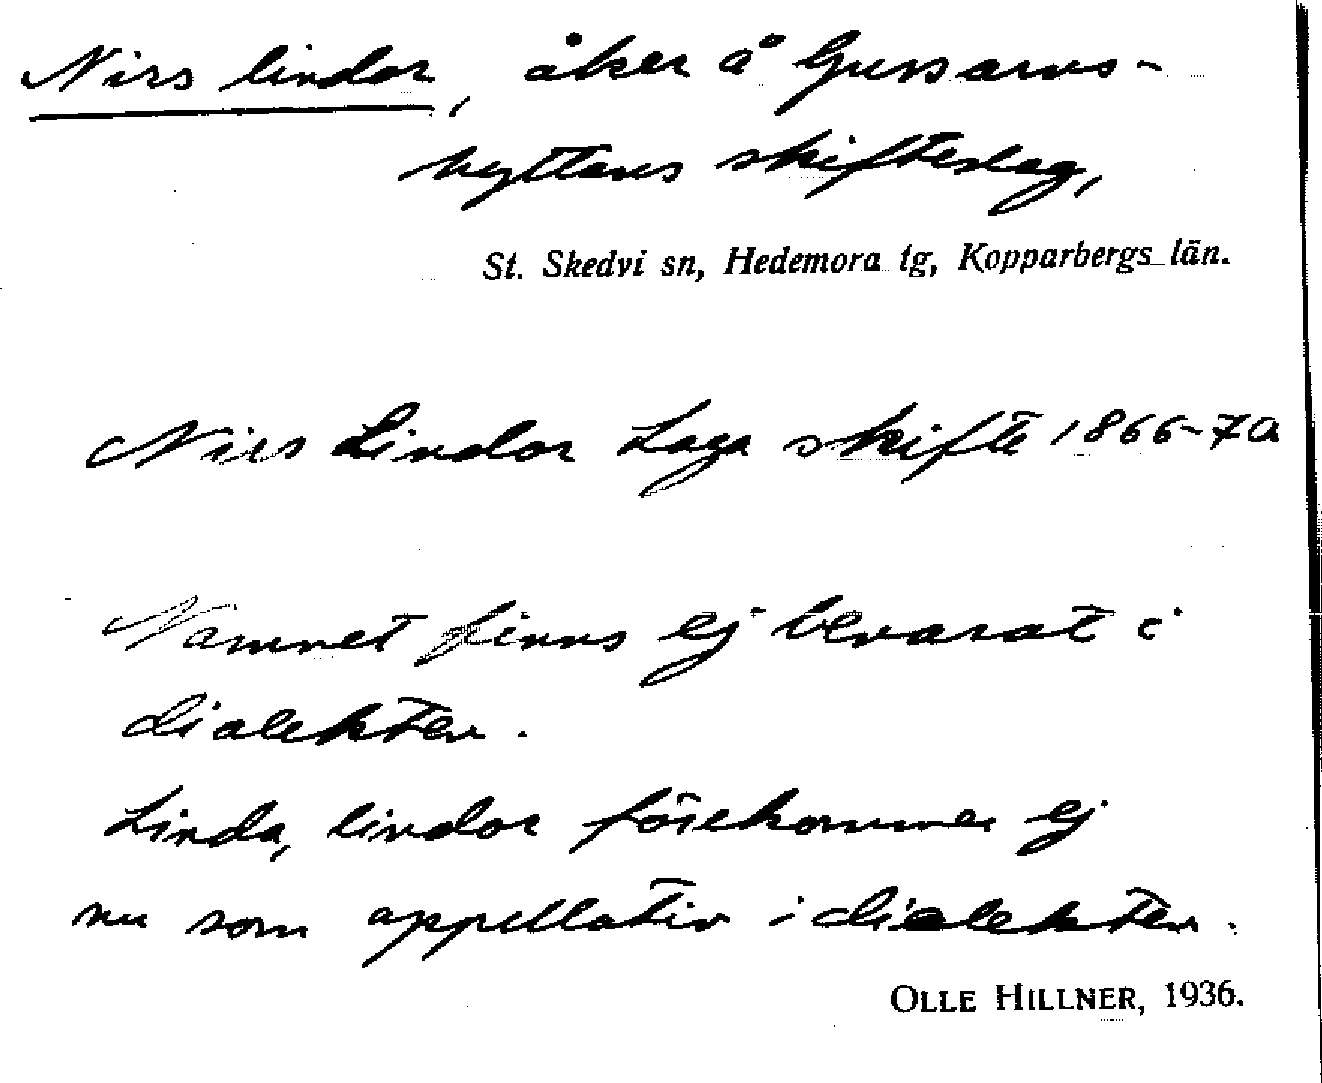 Nirs lindor, åker å Gussarvs-
hyttans skifteslag,
St. Skedvi sn, Hedemora tg, Kopparbergs län.
Nirs Lindor Laga skifte 1866-70
Namnet finns ej bevarat i
dialekten.
Linda, lindor förekommer ej
nu som appellativ i dialekten.
OLLE HILLNER, 1936.